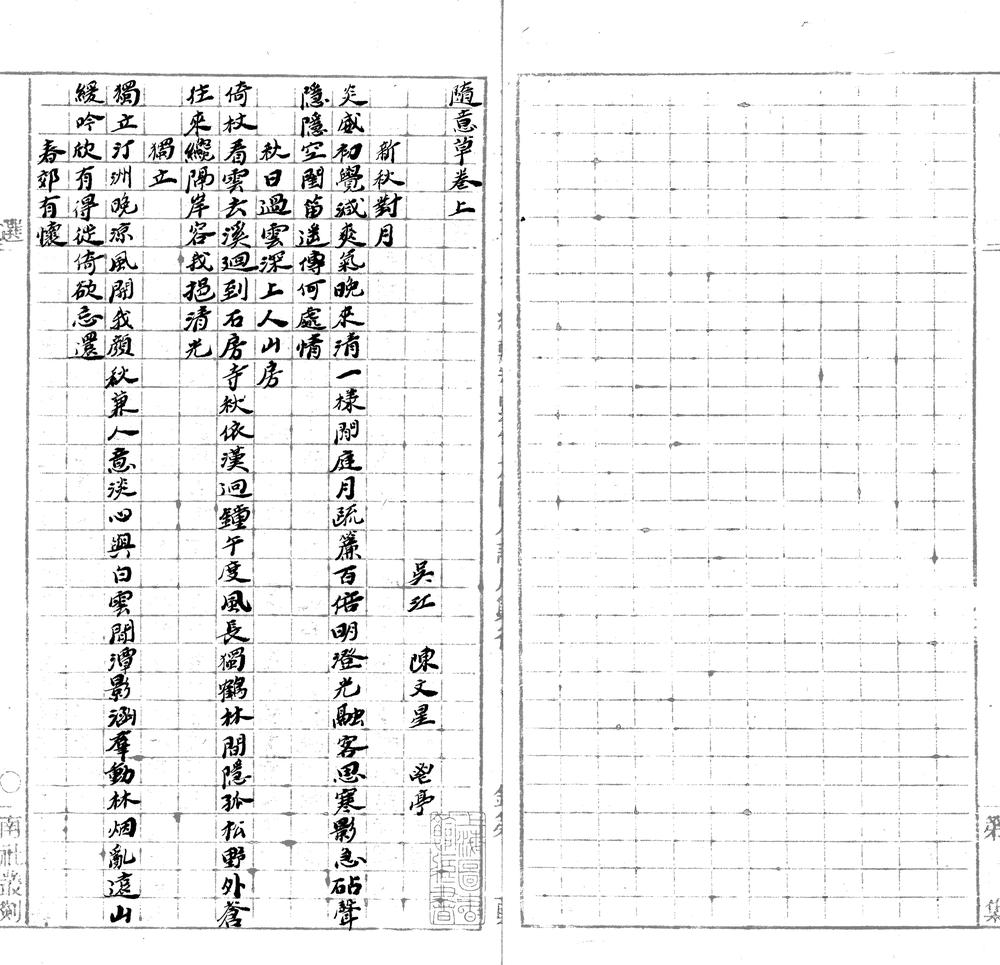 隨意草卷上
吳江 陳文星 鬯亭
新秋對月
炎威初覺減爽氣晚來清一樣閒庭月疏簾百倍明澄光融客思寒影急砧聲
隱隱空閨笛遥傳何處情
秋日過雲深上人山房
倚杖看雲去溪迴到石房寺秋依漢迥鐘午度風長獨鶴林間隱孤松野外蒼
往來纔隔岸容我挹清光
獨立
獨立汀洲晚涼風開我顏秋兼人意淡心與白雲閒潭影涵羣動林烟亂遠山
緩吟欣有得徙倚欲忘還
春郊有懷
選
南社叢刻
第 集